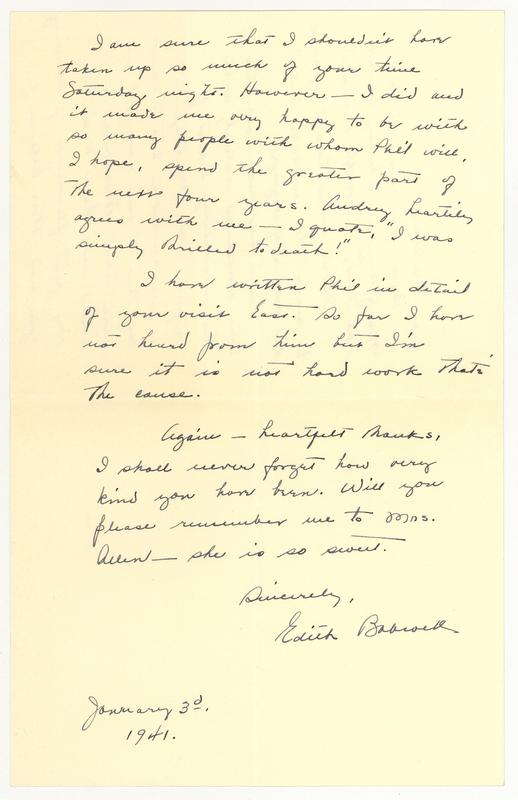 I am sure that I shouldn't have
taken up so much of your time
Saturday night. However — I did and
it made me very happy to be with
so many people with whom Phil will,
I hope, spend the greater part of
the next four years. Audrey heartily
agrees with me — I quote, "I was
simply thrilled to death!"
I have written Phil in detail
of your visit East. So far I have
not heard from him but I'm
sure it is not hard work that's
the cause.
Again — heartfelt thanks,
I shall never forget how very
kind you have been. Will you
please remember me to Mrs.
Allen — she is so sweet.
Sincerely,
Edith Babcock
January 3d.
1941.